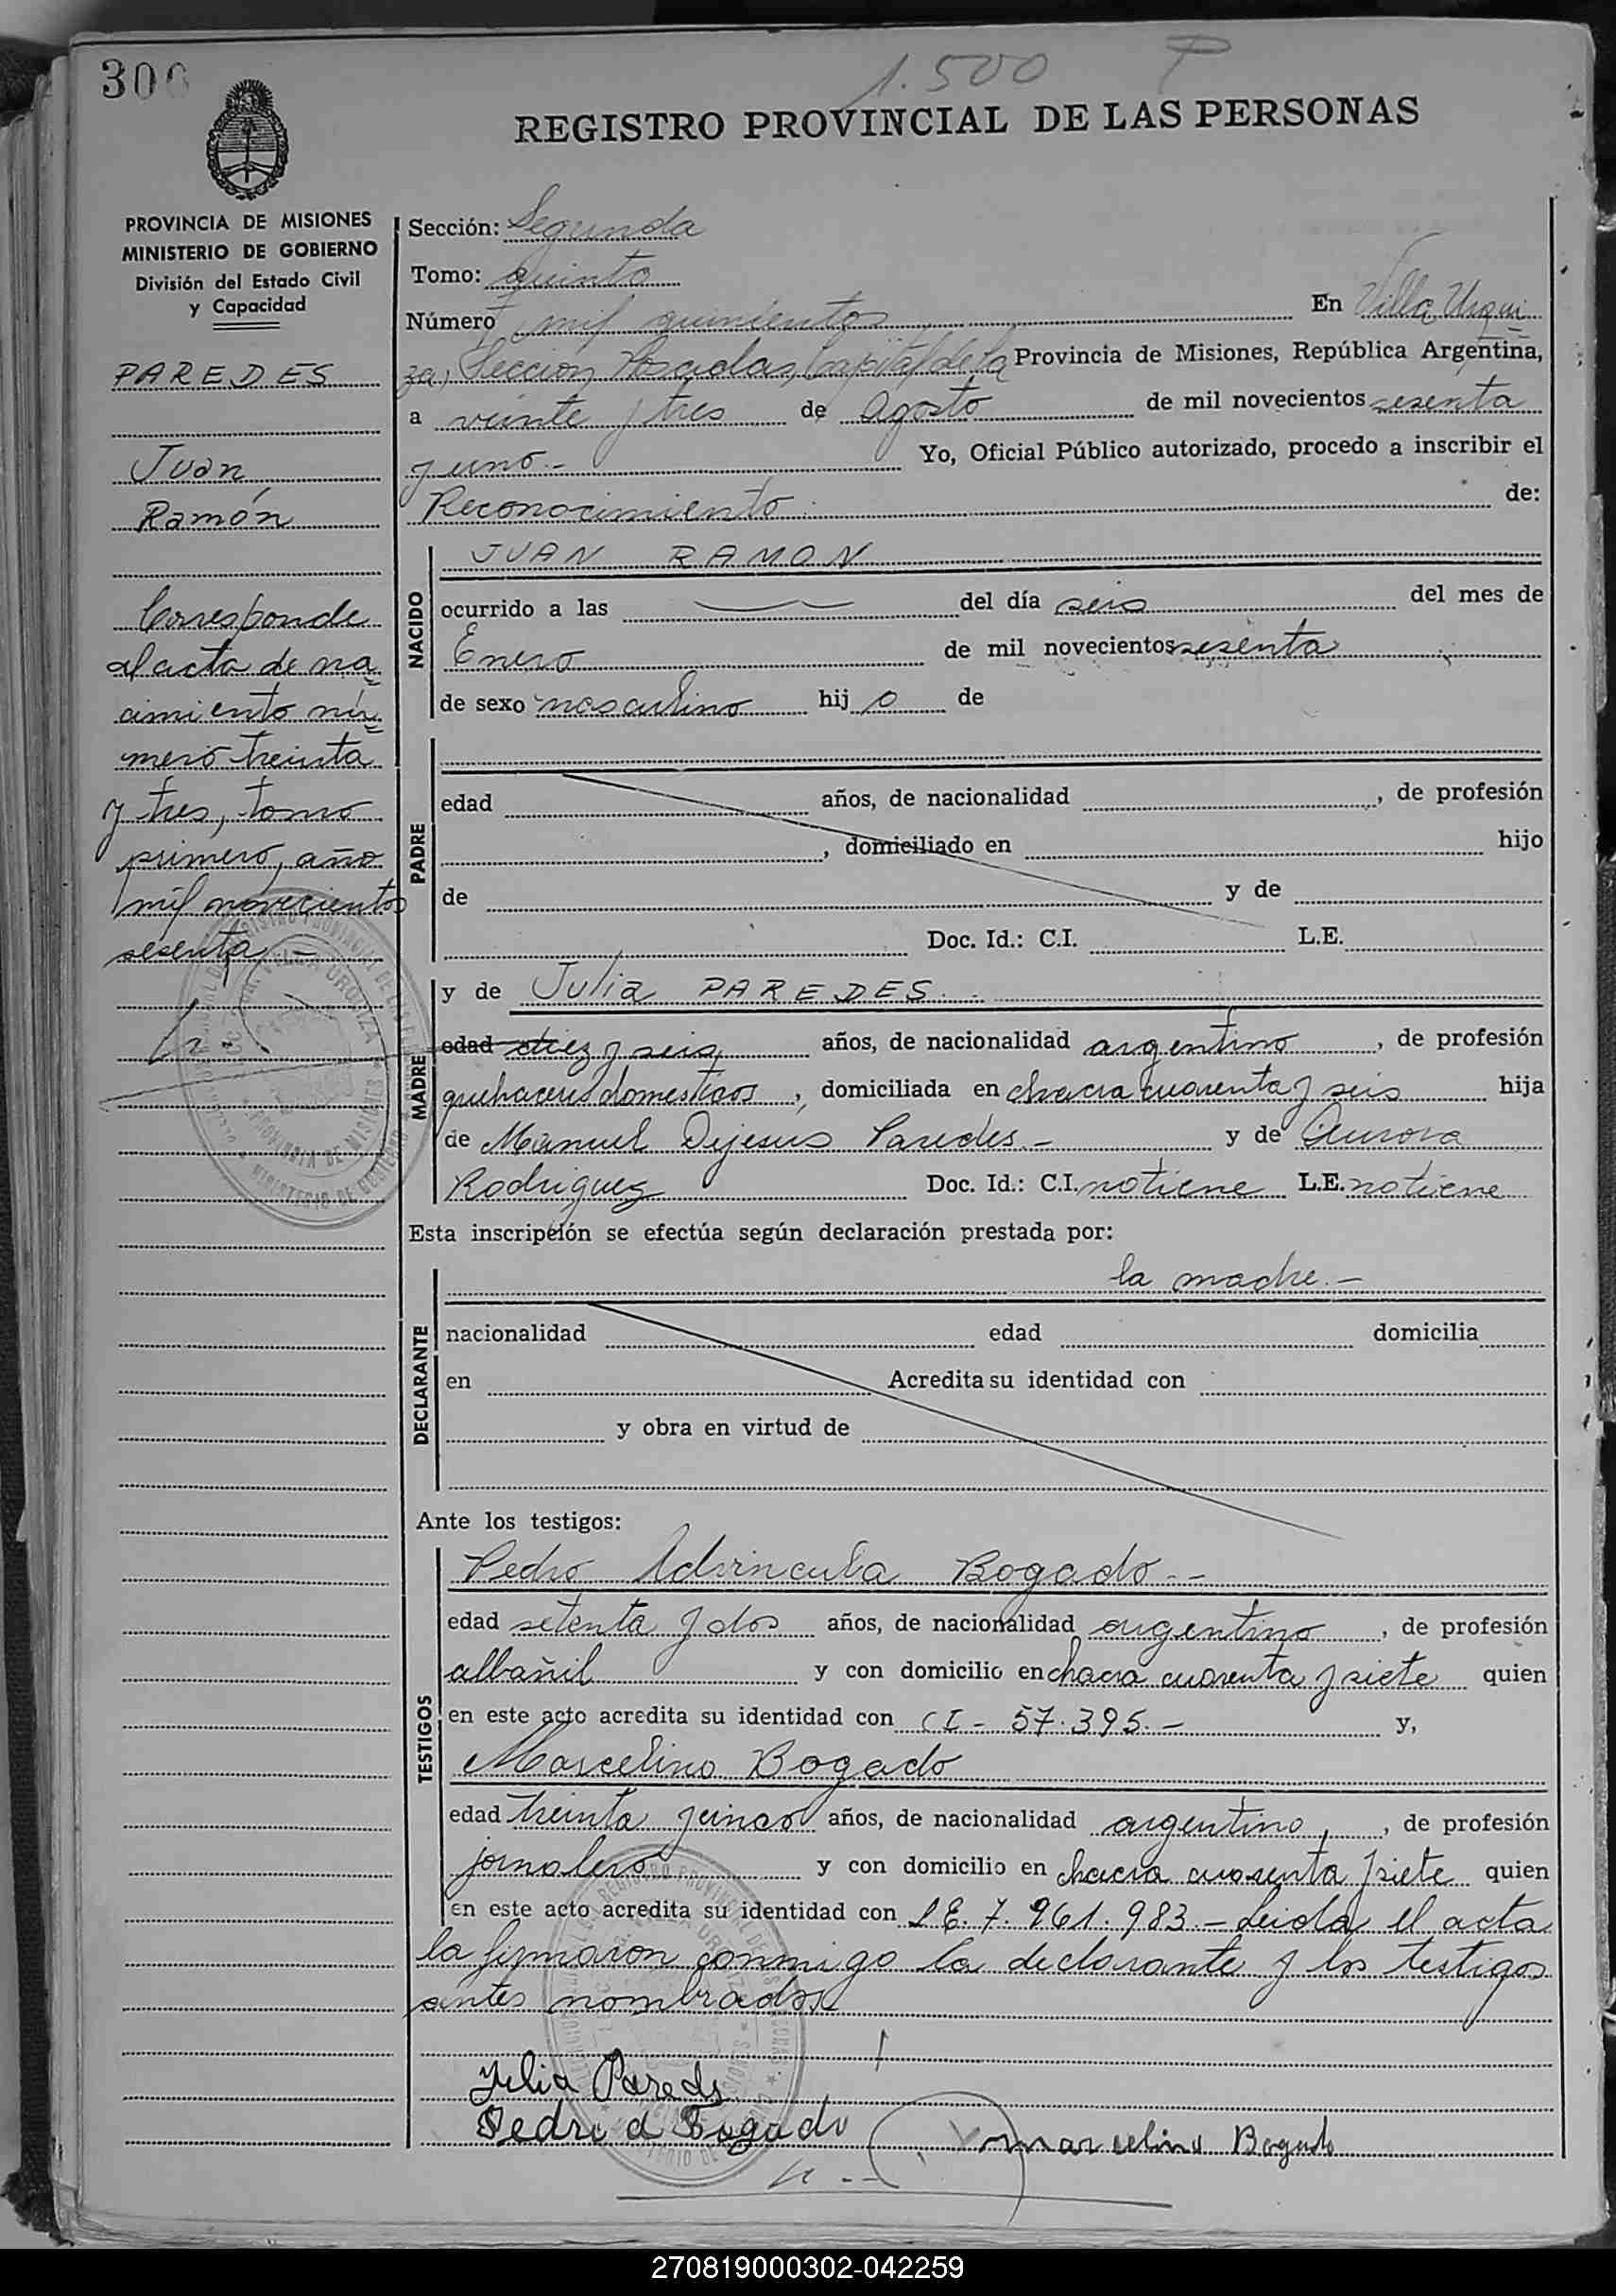 300
1.500 P
REGISTRO PROVINCIAL DE LAS PERSONAS
PROVINCIA DE MISIONES
MINISTERIO DE GOBIERNO
División del Estado Civil
y Capacidad
PAREDES
Juan
Ramón
Corresponde
al acta de na
cimiento nú
mero treinta
y tres, tomo
primero, año
mil novecientos
sesenta.-
Sección: Segunda
Tomo: quinto
Número mil quinientos En Villa Urqui
za, Seccion Posadas, Capital de la Provincia de Misiones, República Argentina,
a veinte y tres de Agosto de mil novecientos sesenta
y uno.- Yo, Oficial Público autorizado, procedo a inscribir el
Reconocimiento de:
NACIDO
JUAN RAMON
ocurrido a las del día seis del mes de
Enero de mil novecientos sesenta
de sexo masculino hij o de
PADRE
edad años, de nacionalidad , de profesión
, domiciliado en hijo
de y de
Doc. Id.: C.I. L.E.
MADRE
y de Julia PAREDES.
edad diez y seis años, de nacionalidad argentino, de profesión
quehaceres domesticos, domiciliada en chacra cuarenta y seis hija
de Manuel Dejesus Paredes.- y de Aurora
Rodriguez Doc. Id.: C.I. no tiene L.E. no tiene
Esta inscripción se efectúa según declaración prestada por:
DECLARANTE
la madre.-
nacionalidad edad domicilia
en Acredita su identidad con
y obra en virtud de
Ante los testigos:
TESTIGOS
Pedro Advincula Bogado.--
edad setenta y dos años, de nacionalidad argentino, de profesión
albañil y con domicilio en chacra cuarenta y siete quien
en este acto acredita su identidad con CI - 57.395.- y,
Marcelino Bogado
edad treinta y cinco años, de nacionalidad argentino, de profesión
jornalero y con domicilio en chacra cuarenta y siete quien
en este acto acredita su identidad con LE. 7.961.983.- Leida el acta
la firmaron conmigo la declarante y los testigos
antes nombrados
Julia Pareds
Pedro a Bogado
marcelino Bogado
270819000302-042259